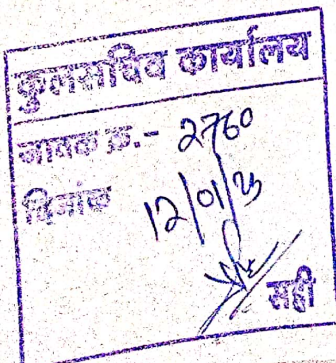 कुलसचिव कार्यालय
जावक क्र.- 2760
दिनांक 12/01/23
सही